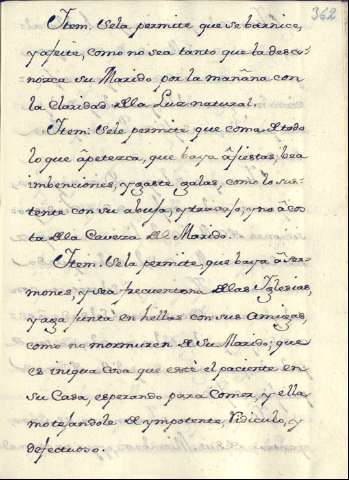 362
Item. Sela permite que se barnice,
y afeite, como no sea tanto que la desco-
nozca su Marido por la mañana con
la claridad dela Luz natural.
Item: Sele permite que coma detodo
lo que âpetezca, que baya âfiestas, bea
imbenciones, y gaste galas, como lo sus-
tente con su abuso, y no âcos
ta dela Caveza del Marido.
Item. Sela permite, que baya â ser-
mones, y sea frecuentona delas Yglesias,
y aga junta en hellas con sus Amigas,
como no mormuren de su Marido; que
es iniqua cosa que esté el paciente en
su Casa, esperando para Comer, y ella
motejandole de ympotente, Ridiculo, y
defectuoso.